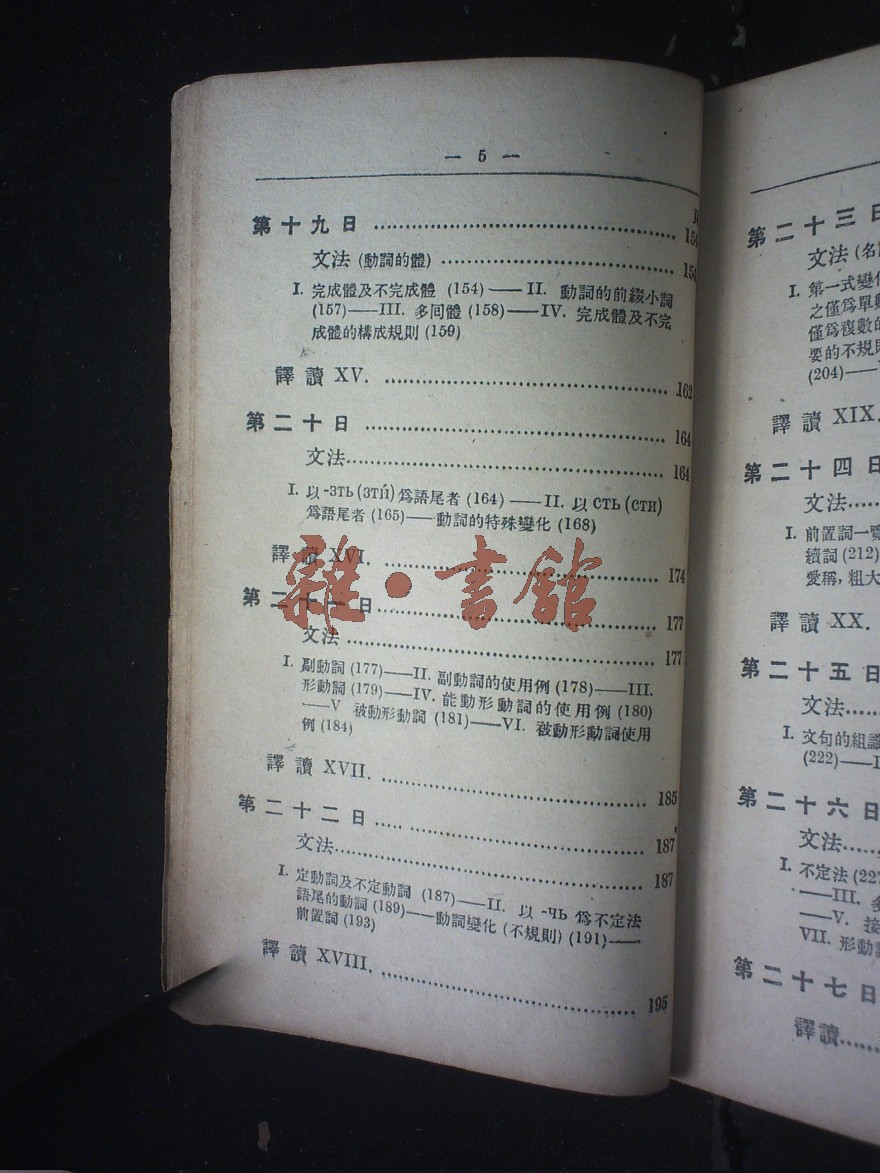 — 5 —
第十九日 154
文法 (動詞的體) 154
I. 完成體及不完成體 (154) —— II. 動詞的前綴小詞
(157)——III. 多回體 (158)——IV. 完成體及不完
成體的構成規則 (159)
譯讀 XV. 162
第二十日 164
文法 164
I. 以 -зть (зти́) 爲語尾者 (164) —— II. 以 сть (сти)
爲語尾者 (165)——動詞的特殊變化 (168)
譯讀 XVI. 174
第二十一日 177
文法 177
I. 副動詞 (177)——II. 副動詞的使用例 (178)——III.
形動詞 (179)——IV. 能動形動詞的使用例 (180)
——V 被動形動詞 (181)——VI. 被動形動詞使用
例 (184)
譯讀 XVII. 185
第二十二日 187
文法 187
I. 定動詞及不定動詞 (187)——II. 以 -чь 爲不定法
語尾的動詞 (189)——動詞變化 (不規則) (191)——
前置詞 (193)
譯讀 XVIII. 195
雜·書館
第二十三日
文法 (名
I. 第一式變化
之僅爲單數
僅爲複數的
要的不規則
(204)——
譯讀 XIX.
第二十四日
文法
I. 前置詞一覽
續詞 (212)
愛稱, 粗大
譯讀 XX.
第二十五日
文法
I. 文句的組織
(222)——
第二十六日
文法
I. 不定法 (227
——III.
——V. 接
VII. 形動
第二十七日
譯讀